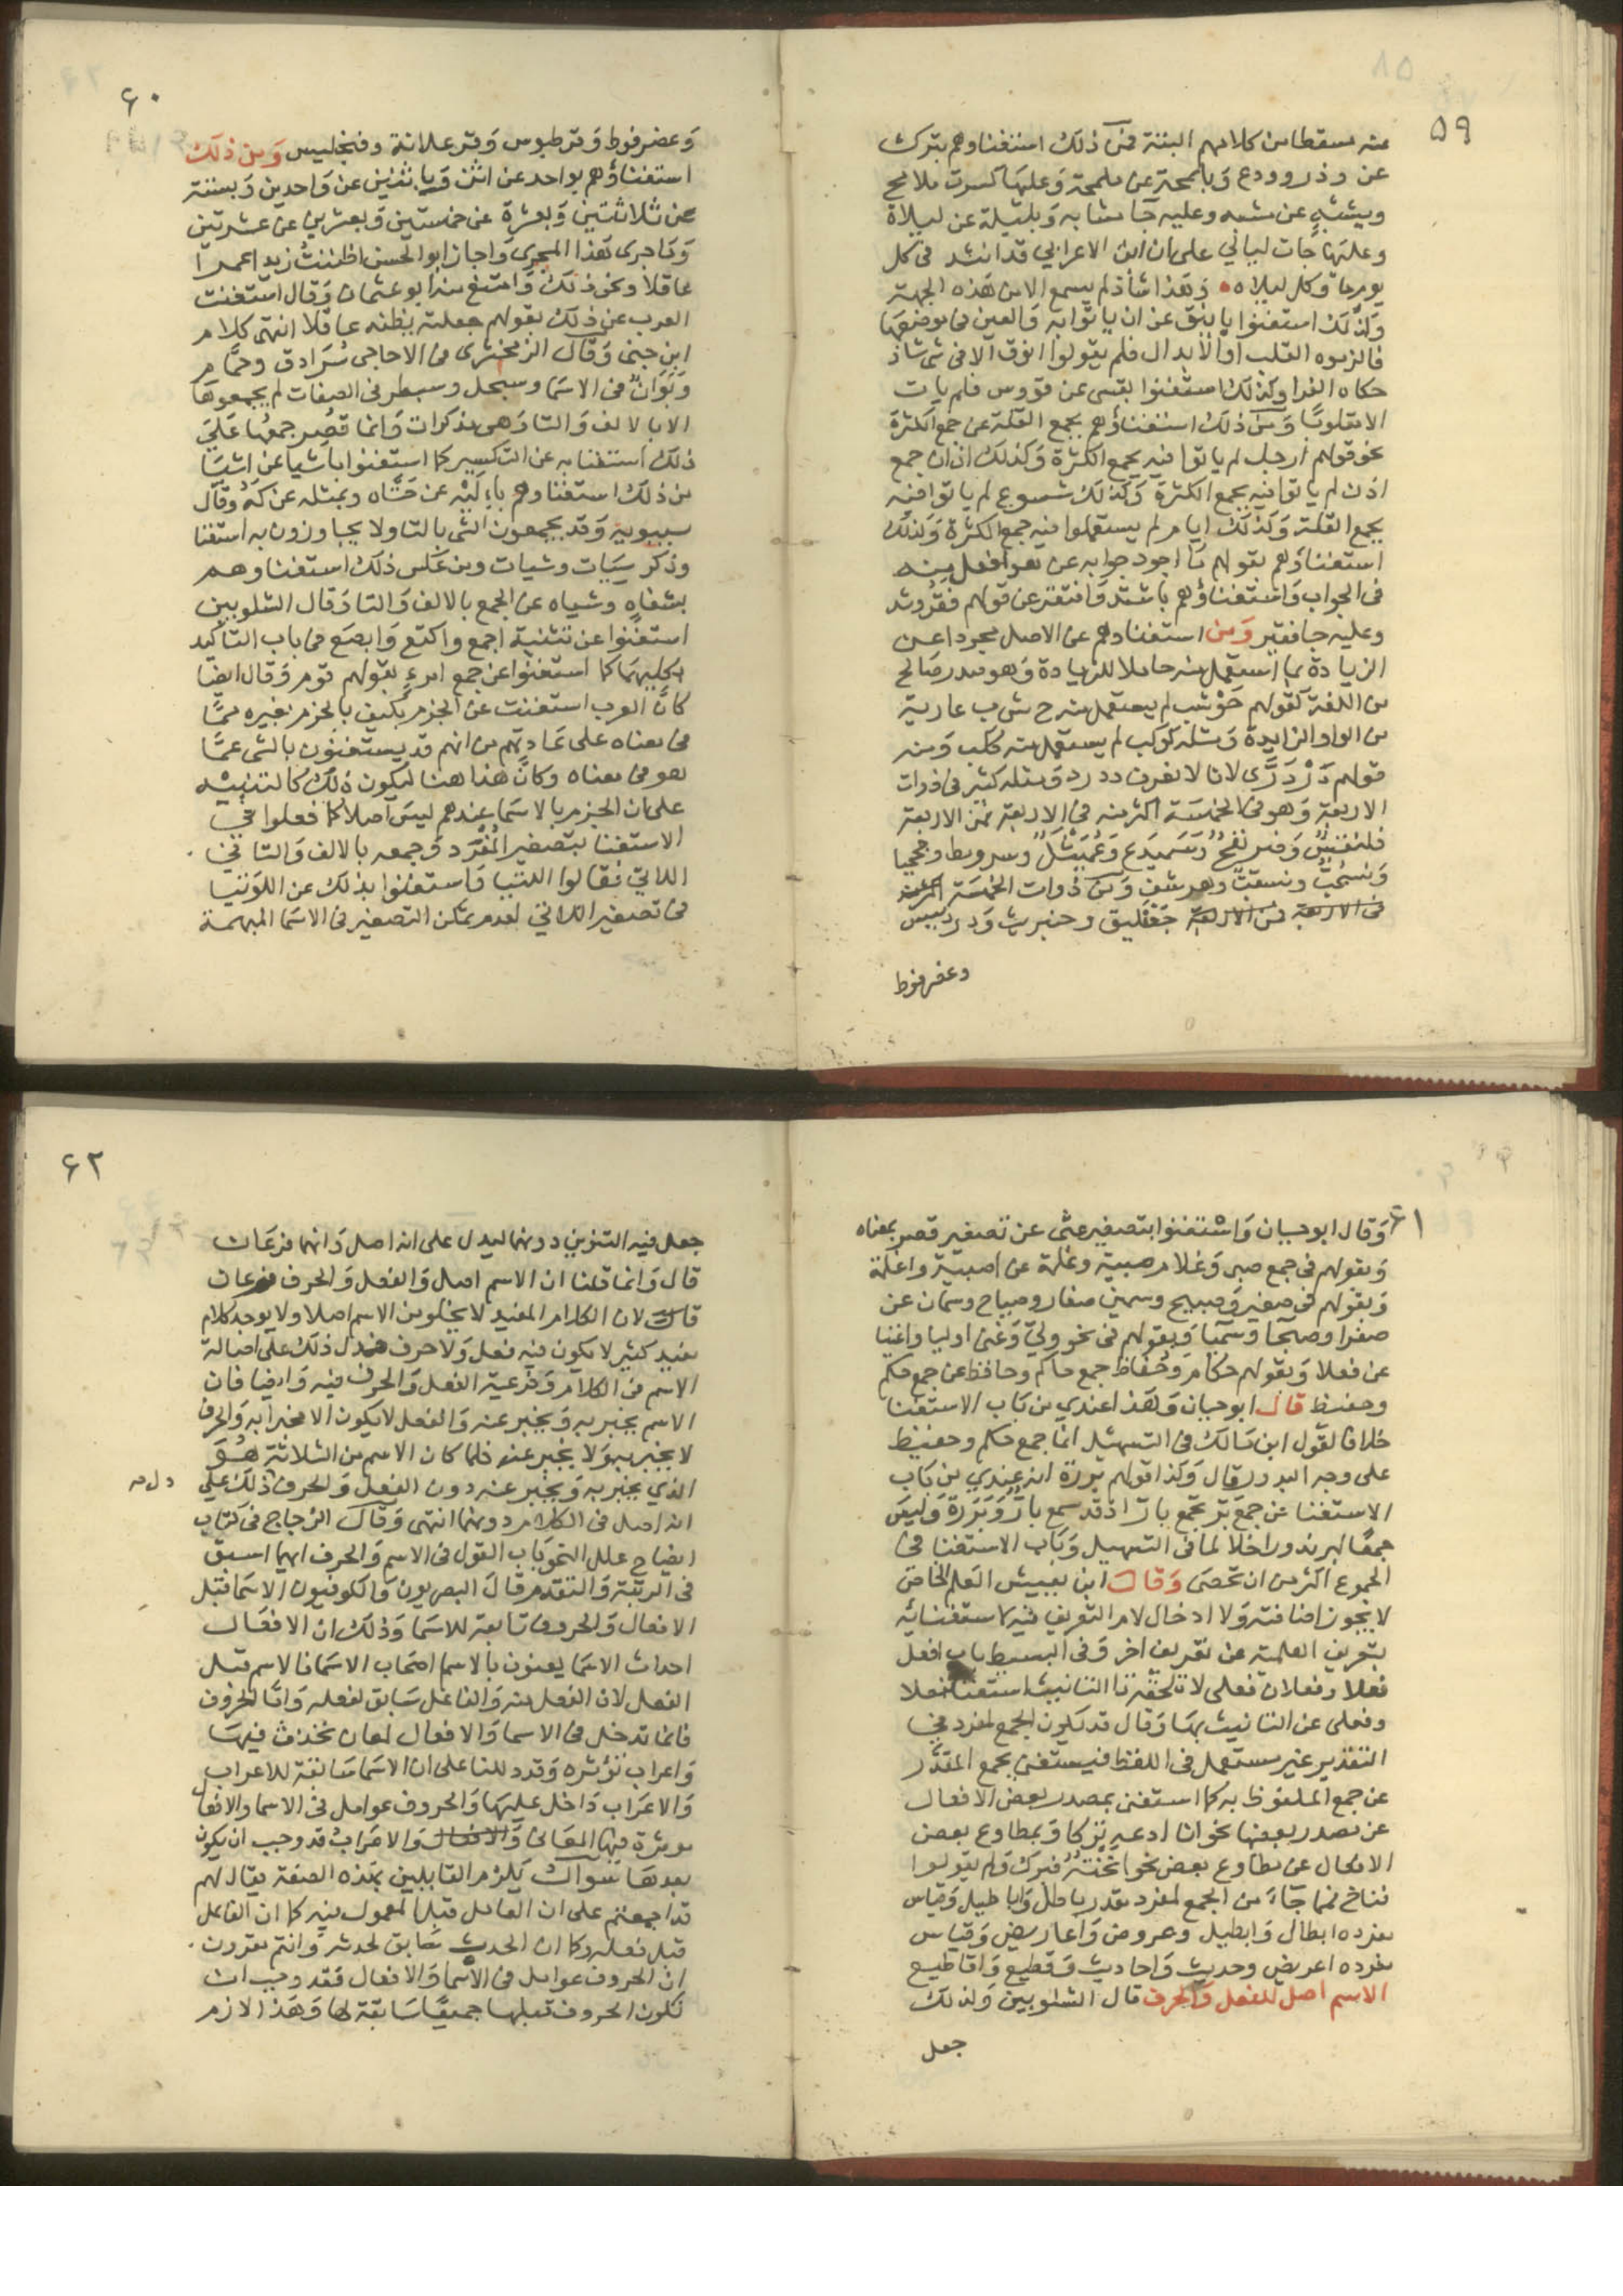 ٥٩
عنه مسقطا من كلامهم البتة فمن ذلك استغناوهم بترك
عن وذر وودع وبالمحة عن ملمحة وعليها كسرت ملامح
وبشبه عن مشبه وعليه جا مشابه وبليلة عن ليلاة
وعليها جات ليالي على ان ابن الاعرابي قد انشد في كل
يوم ما وكل ليلاه وهذا شاذ لم يسمع الا من هذه الجهة
وكذلك استغنوا باينق عن ان ياتوا به والعين في موضعها
فالزموه القلب او الابدال فلم يقولوا انوق الا في شي شاذ
حكاه الفرا وكذلك استغنوا بقسى عن قووس فلم يات
الا مقلوبا ومن ذلك استغناؤهم بجمع القلة عن جمع الكثرة
نحو قولهم ارجل لم ياتوا فيه بجمع الكثرة وكذلك اذان جمع
اذن لم ياتوا فيه بجمع الكثرة وكذلك شسوع لم ياتوا فيه
بجمع القلة وكذلك ايام لم يستعملوا فيه جمع الكثرة وكذلك
استغناؤهم بقولهم ما اجود جوابه عن هو افعل منه
في الجواب واستغناؤهم باشتد وافتقر عن قولهم فقر وشد
وعليه جا فقير ومن استغناوهم عن الاصل مجردا عن
الزيادة بما استعمل منه حاملا للزيادة وهو صدر صالح
من اللغة كقولهم حوشب لم يستعمل منه ح ش ب عارية
من الواو الزايدة ومثله كوكب لم يستعمل منه ككب ومنه
قولهم دَوْدَرَّى لانا لا نعرف ددر ومثله كثير في ذوات
الاربعة وهو في الخمسة اكثر منه في الاربعة فمن الاربعة
فلنقس وصرنفح وسميدع وعميثل وسرومط وجحجبا
وقسحب وقسقب وهرشف ومن ذوات الخمسة
في الاربعة من الاربعة جعفليق وحنبريت ودردبيس
وعضرفوط
٦٠
وعضرفوط وقرطبوس وقرعبلانة وفنجليس ومن ذلك
استغناؤهم بواحد عن اثن وباثنين عن واحدين وبستة
عن ثلاثتين وبعشرة عن خمستين وبعشرين عن عشرتين
وما جرى هذا المجرى واجاز ابو الحسن اظننت زيدا عمرا
عاقلا ونحو ذلك وامتنع منه ابو عثمان وقال استغنت
العرب عن ذلك بقولهم جعلته يظنه عاقلا انتهى كلام
ابن جني وقال الزمخشري في الاحاجي سُرادق وحمّام
وبَوَان في الاسما وسبحل وسبطر في الصفات لم يجمعوها
الا بالالف والتا وهي مذكرات وانما قُصر جمعها على
ذلك استغنا به عن التكسير كما استغنوا باشيا عن اشيا
من ذلك استغناوهم باليه عن حتاه وبمثله عن كَه وقال
سيبويه وقد يجمعون الشي بالتا ولا يجاوزون به استغنا
وذكر سيات وشيات ومن عكس ذلك استغناوهم
بشفاه وشياه عن الجمع بالالف والتا وقال الشلوبين
استغنوا عن تثنية اجمع واكتع وابصع في باب التاكيد
بكليهما كما استغنوا عن جمع امرءٍ بقولهم قوم وقال ايضا
كان العرب استغنت عن الجزم بكيف بالجزم بغيره مما
في معناه على عادتهم من انهم قد يستغنون بالشي عما
هو في معناه وكان هذا هنا ليكون ذلك كالتنبيه
على ان الجزم بالاسما عندهم ليس اصلا كما فعلوا في
الاستغنا بتصغير المفرد وجمعه بالالف والتا في
اللاتي فقالوا اللتيا واستغنوا بذلك عن اللوتيا
في تصغير اللاتي لعدم تمكن التصغير في الاسما المبهمة
٦١
وقال ابو حيان واستغنوا بتصغير عشى عن تصغير قصر بمعناه
وبقولهم في جمع صبى وغلام صبية وغلمة عن اصبية واغلمة
وبقولهم في صغير وصبيح وسمين صغار وصباح وسمان عن
صغرا وصبحا وسمنا وبقولهم في نحو ولي وغنى اوليا واغنيا
عن فعلا وبقولهم حكام وحُفاظ جمع حاكم وحافظ عن جمع حكم
وحفيظ قال ابو حيان وهذا عندي من باب الاستغنا
خلافا لقول ابن مالك في التسهيل انما جمع حكم وحفيظ
على وجه الندور قال وكذا قولهم بررة انه عندي من باب
الاستغنا عن جمع بر بجمع بارّ اذ قد سمع بارّ وبررة وليس
جمعًا لبر ندورا خلافا لما في التسهيل وباب الاستغنا في
الجموع اكثر من ان تحصى وقال ابن يعيش العلم الخاص
لا يجوز اضافته ولا ادخال لام التعريف فيه لاستغنائه
بتعريف العلمية عن تعريف اخر وفي البسيط باب افعل
فعلا وفعلان فعلى لا تلحقه تا التانيث استغنا بفعلا
وفعلى عن التانيث بها وقال قد يكون الجمع لمفرد في
التقدير غير مستعمل في اللفظ فيستغنى بجمع المقدّر
عن جمع الملفوظ به كما استغنى بمصدر بعض الافعال
عن مصدر بعضها نحو انا ادعه تركا وبمطاوع بعض
الافعال عن مطاوع بعض نحو انخته فبرك ولم يقولوا
فناخ فمما جاء من الجمع لمفرد مقدر باطل واباطيل وقياس
مفرده ابطال وابطيل وعروض واعاريض وقياس
مفرده اعريض وحديث واحاديث وقطيع واقاطيع
الاسم اصل للفعل والحرف قال الشلوبين ولذلك
جعل
٦٢
جعل فيه التنوين دونهما ليدل على انه اصل وانهما فرعان
قال وانما قلنا ان الاسم اصل والفعل والحرف فرعان
قال لان الكلام المفيد لا يخلو من الاسم اصلا ولا يوجد كلام
مفيد كثير لا يكون فيه فعل ولا حرف فدل ذلك على اصالة
الاسم في الكلام وفرعية الفعل والحرف فيه وايضا فان
الاسم يخبر به ويخبر عنه والفعل لا يكون الا مخبرا به والحرف
لا يخبر به ولا يخبر عنه فلما كان الاسم من الثلاثة هو
الذي يخبر به ويخبر عنه دون الفعل والحرف ذلك على
انه اصل في الكلام دونهما انتهى وقال الزجاج في كتاب
ايضاح علل النحو باب القول في الاسم والحرف ايهما اسبق
في الرتبة والتقدم قال البصريون والكوفيون الاسما قبل
الافعال والحروف تابعة للاسما وذلك ان الافعال
احداث الاسما يعنون بالاسم اصحاب الاسما فالاسم قبل
الفعل لان الفعل منه والفاعل سابق لفعله واما الحروف
فانما تدخل في الاسما والافعال لمعان تحدث فيها
واعراب تؤثره وقد دللنا على ان الاسما سابقة للاعراب
والاعراب داخل عليها والحروف عوامل في الاسما والافعا
موثرة فيها المعانى والافعال والاعراب قد وجب ان يكون
بعدها سوال يلزم القايلين بهذه الصفة يقال لهم
قد اجمعتم على ان العامل قبل المعمول فيه كما ان الفاعل
قبل فعله وكما ان الحدث سابق لحدثه وانتم مقرون
ان الحروف عوامل في الاسما والافعال فقد وجب ان
تكون الحروف قبلها جميعًا سابقة لها وهذا لازم